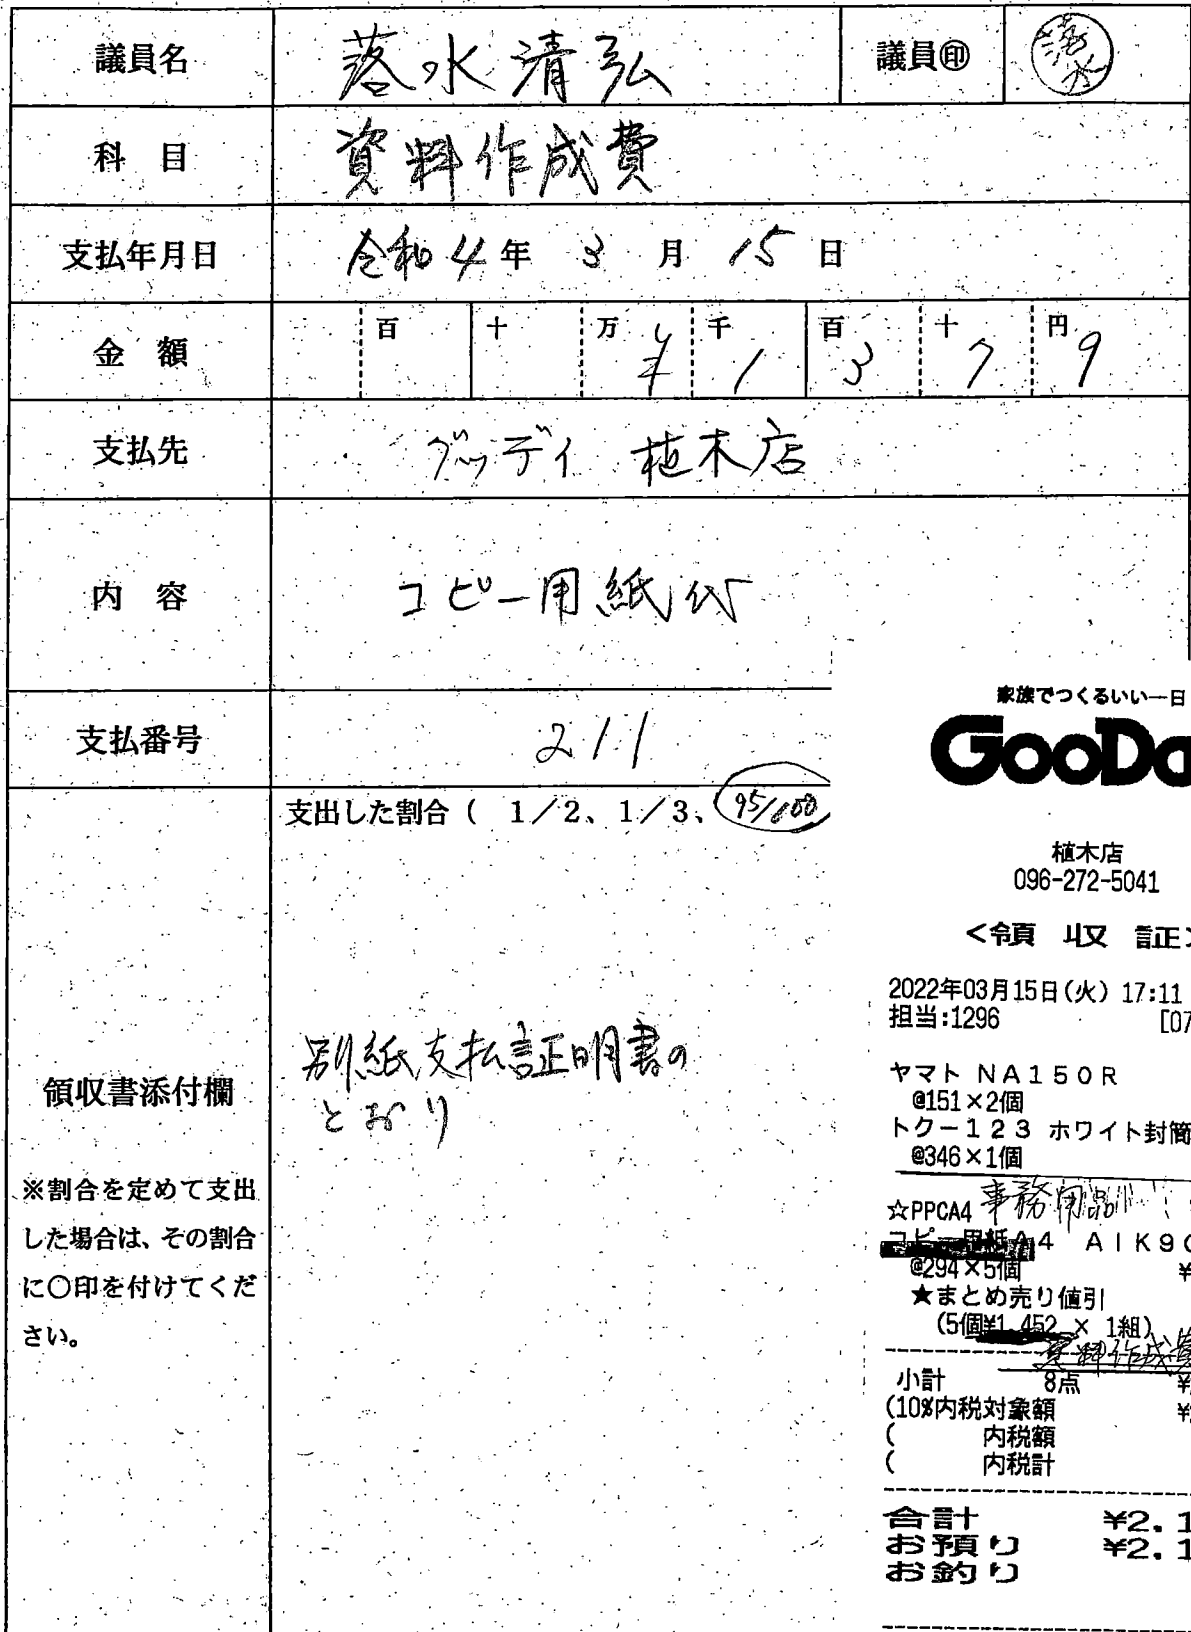 議員名 落水清弘 議員㊞ 落水
科 目 資料作成費
支払年月日 令和4年 3月 15日
金 額 百 十 万 ¥ 千 1 百 3 十 7 円 9
支払先 グッデイ 植木店
内 容 コピー用紙代
支払番号 211
支出した割合 ( 1/2、1/3、95/100
領収書添付欄
別紙支払証明書の
とおり
※割合を定めて支出
した場合は、その割合
に〇印を付けてくだ
さい。
家族でつくるいい一日
GooDa
植木店
096-272-5041
<領 収 証>
2022年03月15日(火) 17:11
担当:1296 [07
ヤマト NA150R
@151×2個
トクー123 ホワイト封筒
@346×1個
事務用品
☆PPCA4
コピー用紙A4 AIK90
@294×5個 ¥
★まとめ売り値引
(5個¥1,452 × 1組)
資料作成費
小計 8点 ¥
(10%内税対象額 ¥
( 内税額
( 内税計
合計 ¥2,1
お預り ¥2,1
お釣り